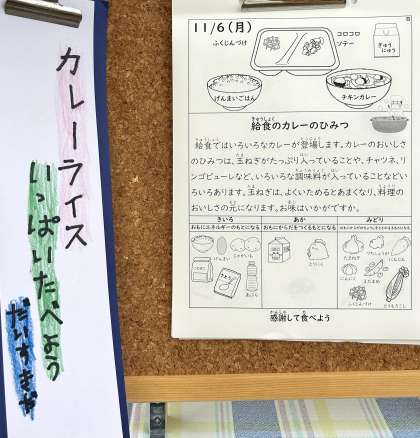 カレーライス
いっぱいたべよう
だいすきな
11/6(月)
ふくじんづけ
コロコロ
ソテー
ぎゅう
にゅう
げんまいごはん
チキンカレー
給食のカレーのひみつ
給食ではいろいろなカレーが登場します。カレーのおいしさ
のひみつは、玉ねぎがたっぷり入っていることや、チャツネ、リ
ンゴピューレなど、いろいろな調味料が入っていることなどい
ろいろあります。玉ねぎは、よくいためるとあまくなり、料理の
おいしさの元になります。お味はいかがですか。
きいろ
あか
みどり
おもにエネルギーのもとになる
おもにからだをつくるもとになる
げんまい
じゃがいも
あぶら
とりにく
たまねぎ
にんじん
にんにく
えだまめ
ふくじんづけ
とうもろこし
感謝して食べよう